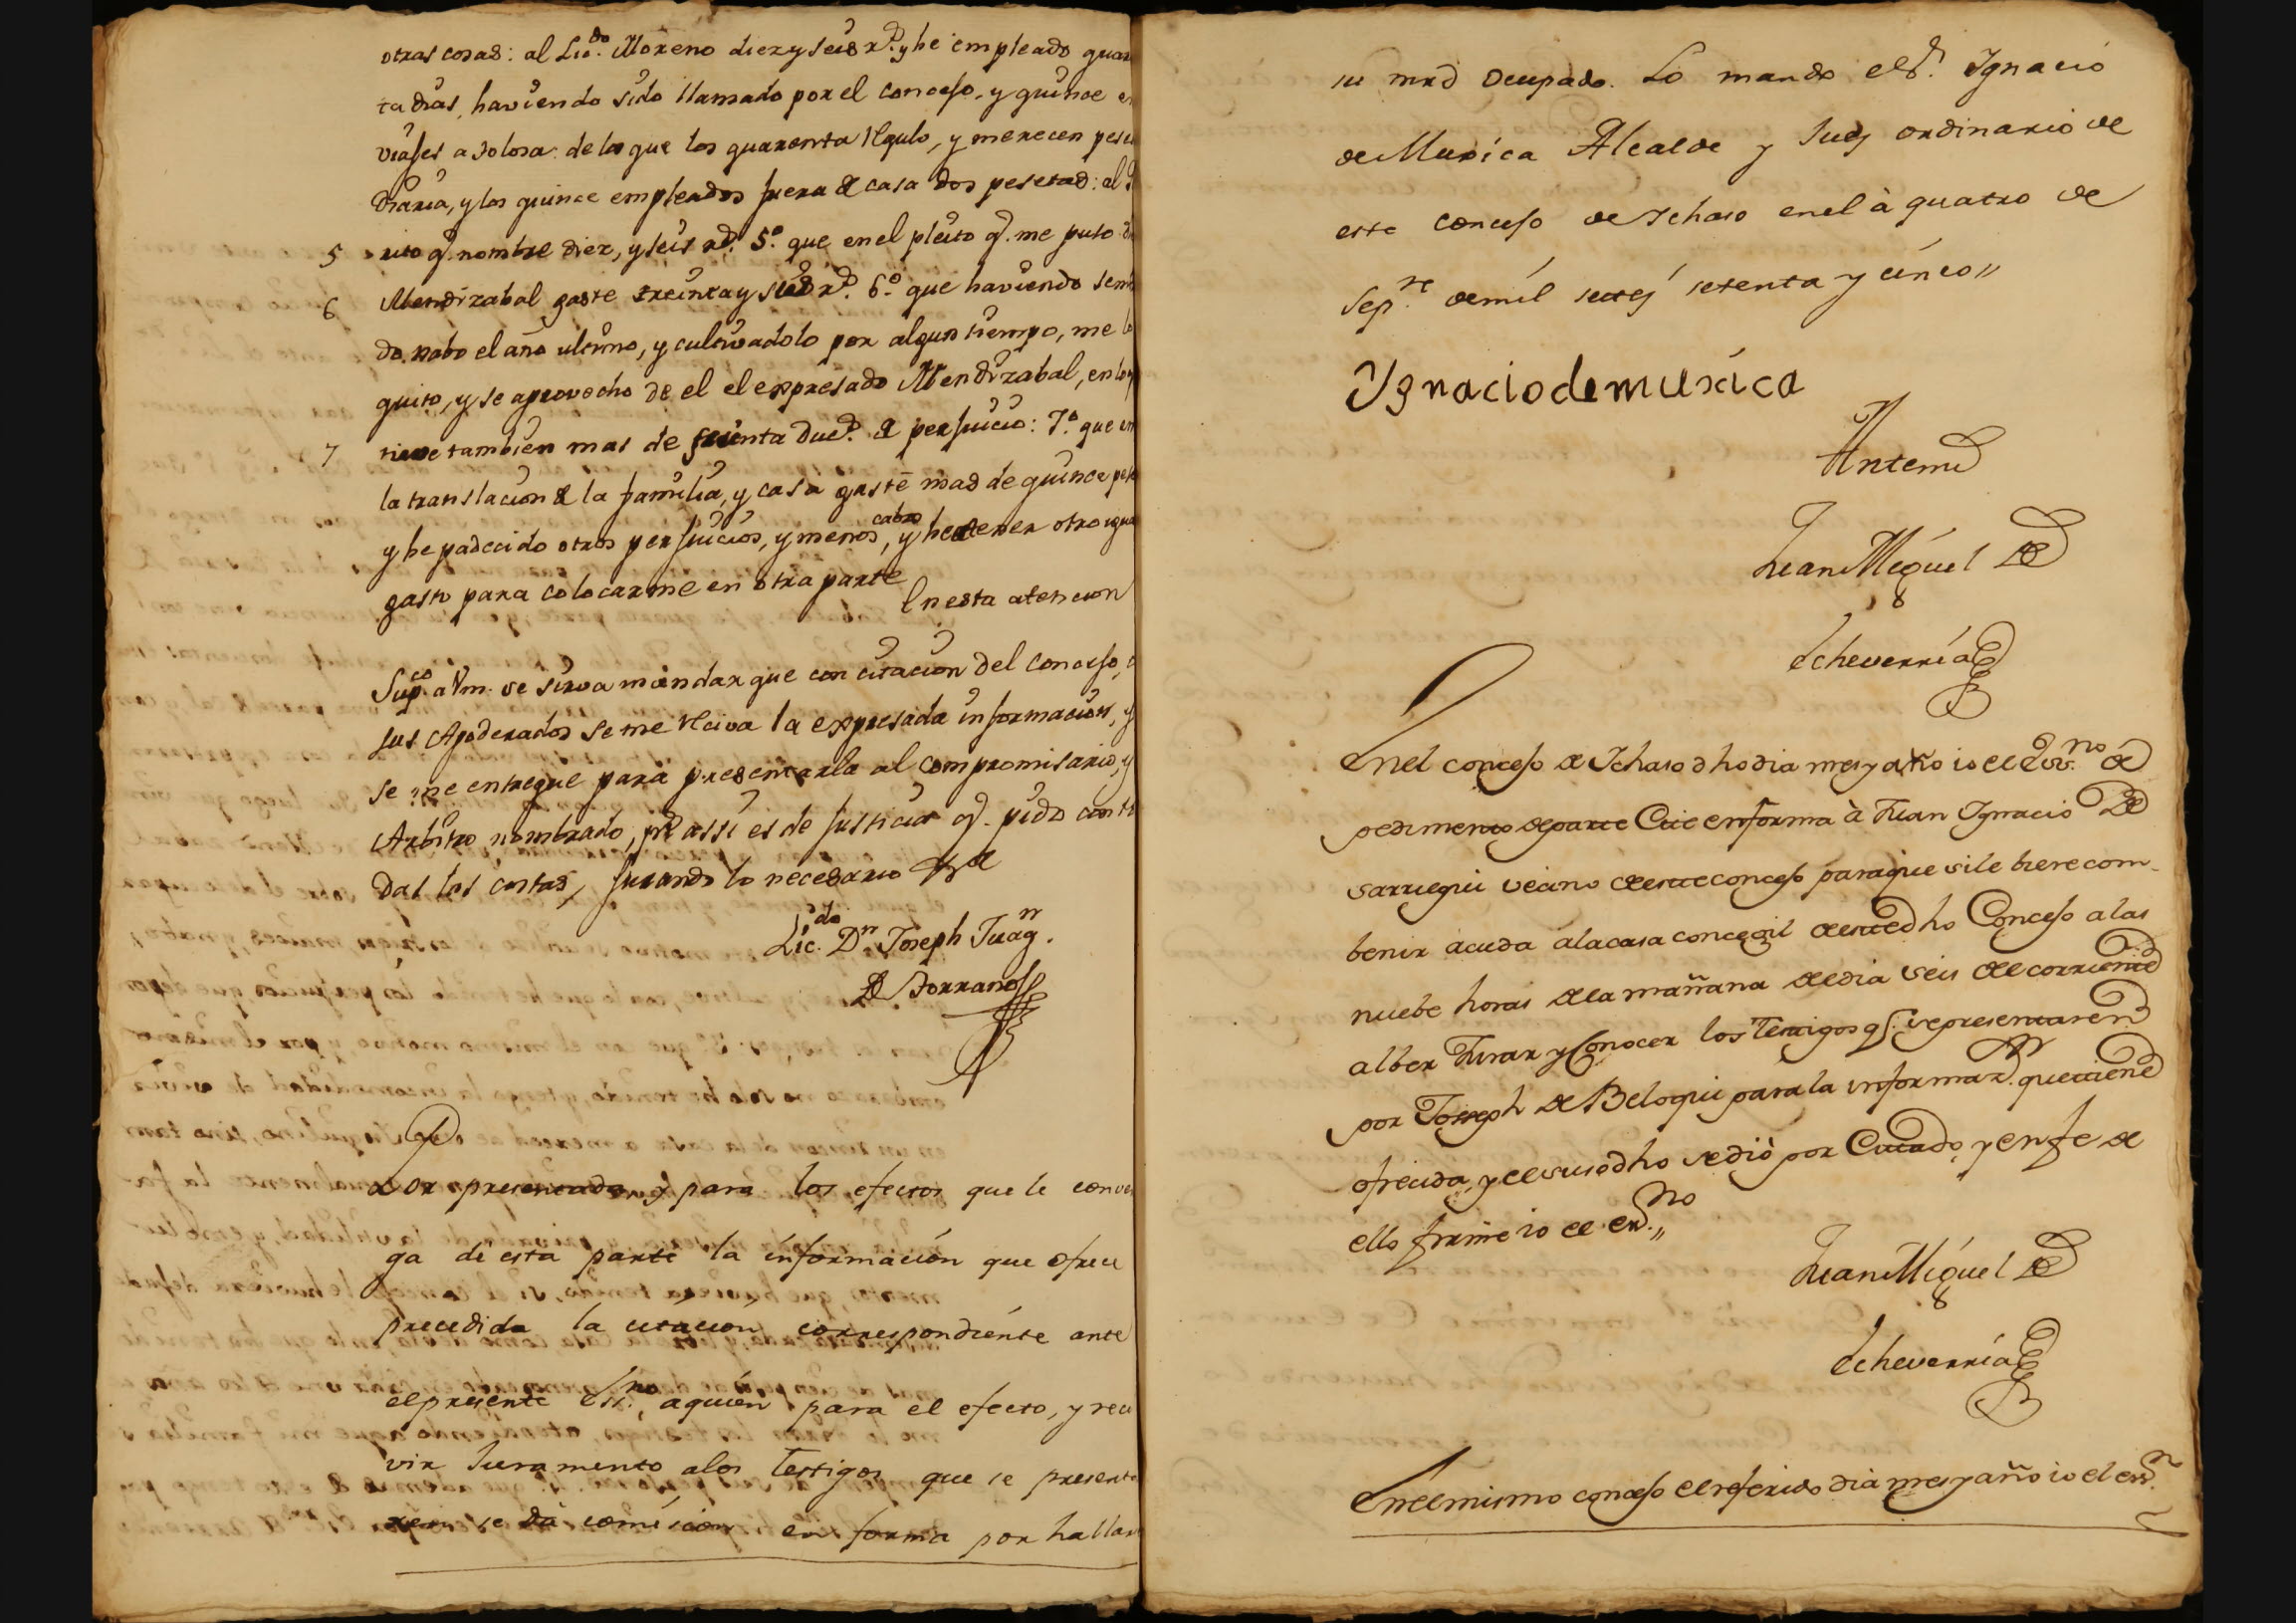 otras cosas: al Lic.do Moreno diez y seis r.s y he empleado quaren
ta dias, haviendo sido llamado por el concejo, y quince en
viajes a Tolosa: de los que los quarenta regulo, y merecen peseta
diaria, y los quince empleados fuera de casa dos pesetas: al
5 rito q.e nombre diez, y seis r.s 5.º que en el pleito q.e me puso
6 Mendizabal gaste treinta y seis r.s 6.º que haviendo sembra
do nabo el año ultimo, y cultivadolo por algun tiempo, me lo
quito, y se aprovecho de el el expresado Mendizabal, en lo q
7 tuve tambien mas de treinta duc.s de perjuicio: 7.º que en
la translacion de la familia, y casa gasté mas de quince pesos
y he padecido otros perjuicios, y menoscabos, y he de tener otro igual
gasto para colocarme en otra parte
En esta atencion
Sup.co a Vm. se sirva mandar que con citacion del concejo, o
sus Apoderados se me reciva la expresada informacion, y
se me entregue para presentarla al compromisario, y
Arbitro nombrado, pr assi es de justicia q.e pido con to
das las costas, jurando lo necesario &
Lic.do D.n Joseph Juaq.n
de Zorrano
Por presentada, y para los efectos que le conven
ga de esta parte la informacion que ofrece
precedida la citacion correspondiente ante
el presente Ess.no, a quien para el efecto, y reci
vir Juramento a los Testigos que se presenta
ren se da comision en forma por hallarse
su mrd ocupado. Lo mando el S.r Ygnacio
de Muxica Alcalde y Juez ordinario de
este concejo de Ychaso en el à quatro de
Sep.re de mil setez setenta y cinco,,
Ygnacio de muxica
Antemi
Juan Miguel de
Echeverria
En el concejo de Ychaso dho dia mes y año io el Ess.no de
pedimento de parte Cite en forma à Juan Ygnacio de
Sarriegui vecino de este concejo para que si le biere com-
benir acuda a la casa concegil de este dho Concejo a las
nuebe horas de la mañana del dia seis del corriente
alber Jurar y Conocer los Testigos q.e se presentaren
por Joseph de Beloqui para la informaz.n que tiene
ofrecida, y el suso dho se diò por Citado, y en fe de
ello firme io el ess.no,,
Juan Miguel de
Echeverria
En el mismo concejo el referido dia mes y año io el ess.n